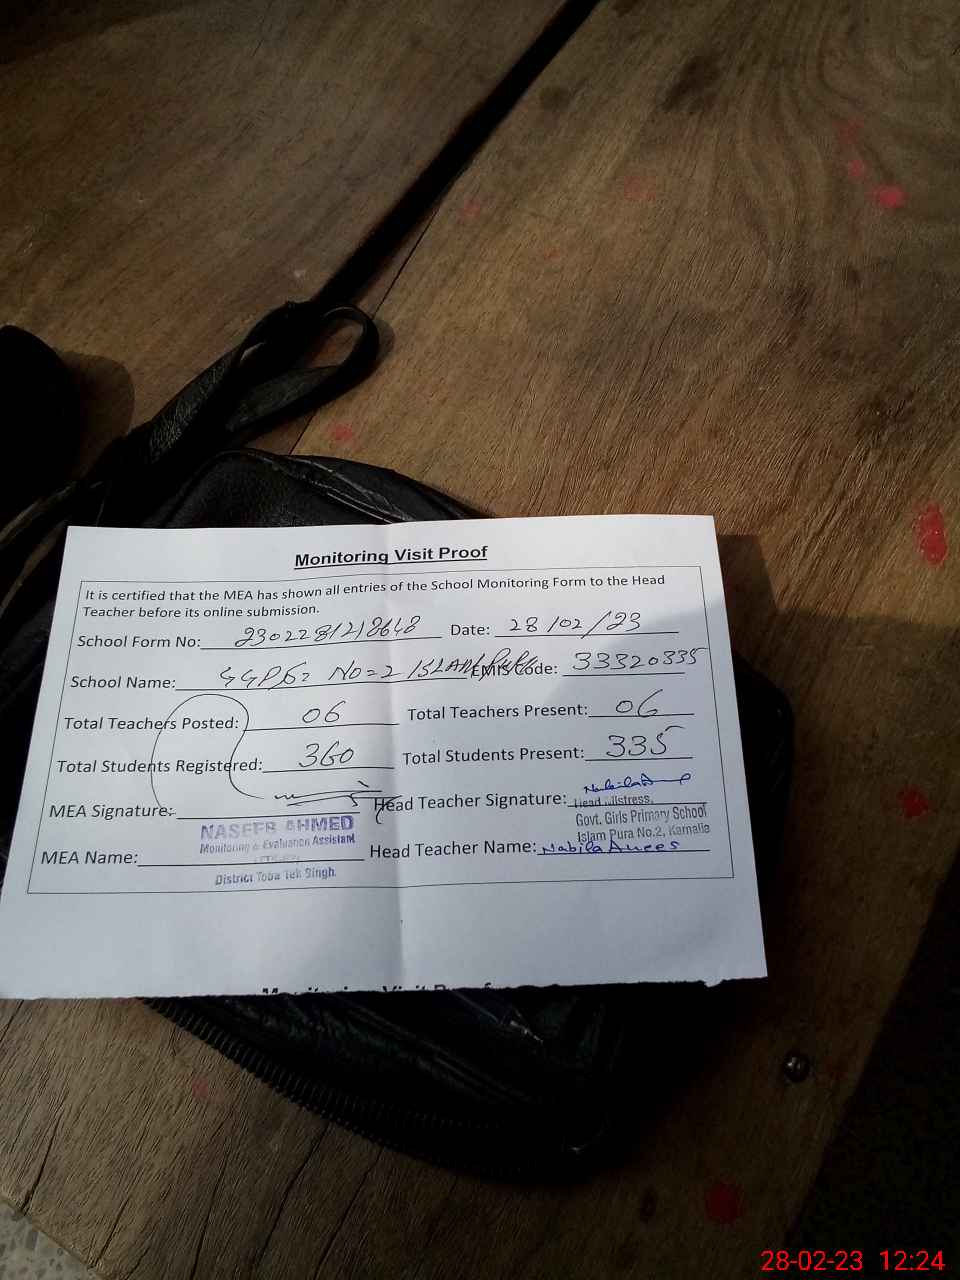 Monitoring Visit Proof
It is certified that the MEA has shown all entries of the School Monitoring Form to the Head
Teacher before its online submission.
School Form No: 2302281218648 Date: 28/02/23
School Name: GGPS: No=2 ISLAM Pura EMIS Code: 33320335
Total Teachers Posted: 06 Total Teachers Present: 06
Total Students Registered: 360 Total Students Present: 335
MEA Signature: Head Teacher Signature:
Head Mistress,
Govt. Girls Primary School
Islam Pura No.2, Kamalia
NASEER AHMED
Monitoring & Evaluation Assistant
District Toba Tek Singh.
MEA Name: Head Teacher Name: Nabila Anees
Monitoring Visit Proof
28-02-23 12:24